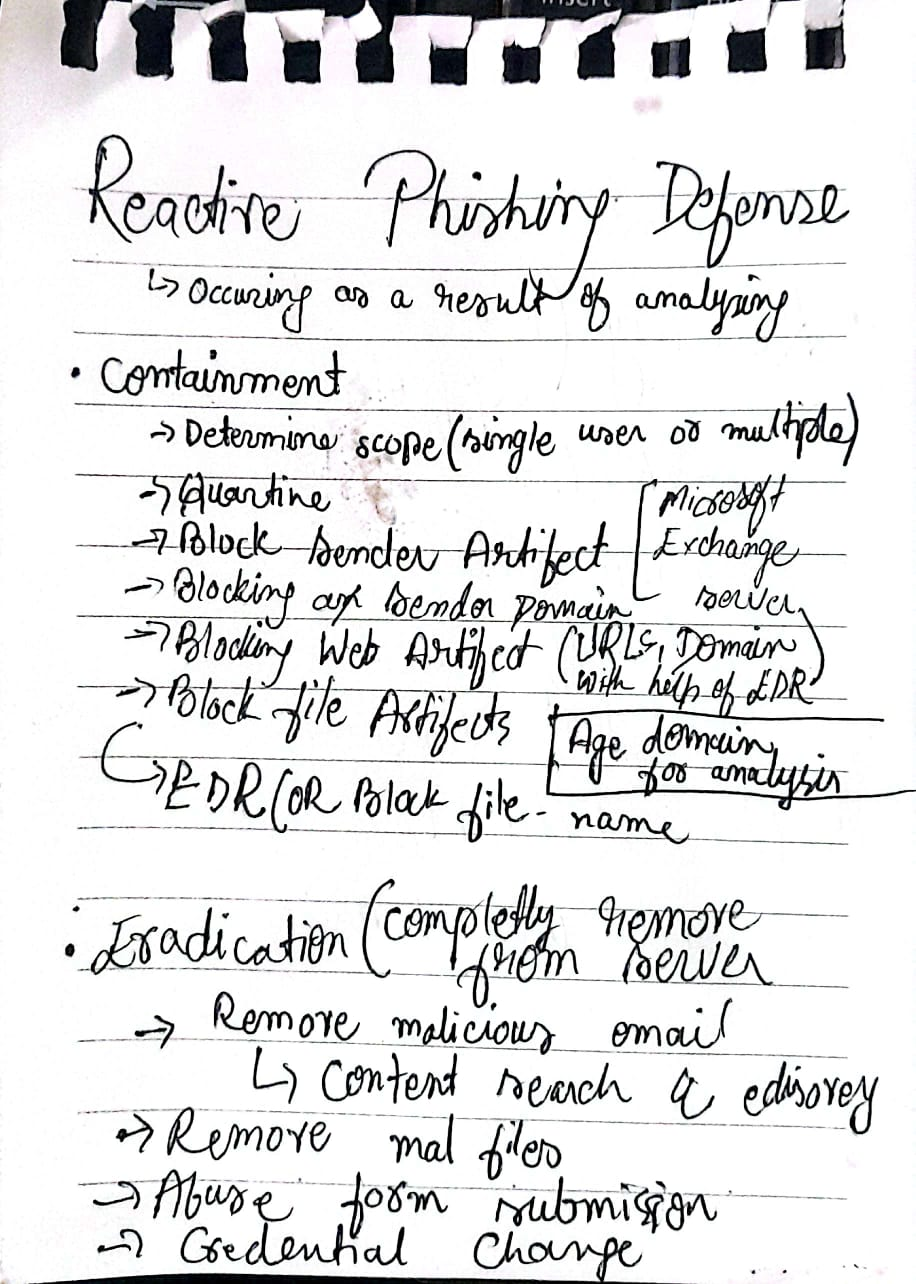 Reactive Phishing Defense
↳ Occuring as a result of analyzing
• Containment
→ Determine scope (single user or multiple)
→ Quantine
→ Block Sender Artifect
[Microsoft
Exchange
server
→ Blocking sender Domain
→ Blocking Web Artifect (URLs, Domain)
with help of EDR
→ Block file Artifects
Age domain
for analysis
↳ EDR (OR Block file-name
• Eradication (completly remove
from server
→ Remove malicious email
↳ Content search & edisorey
→ Remove mal files
→ Abuse form submission
→ Credential Change